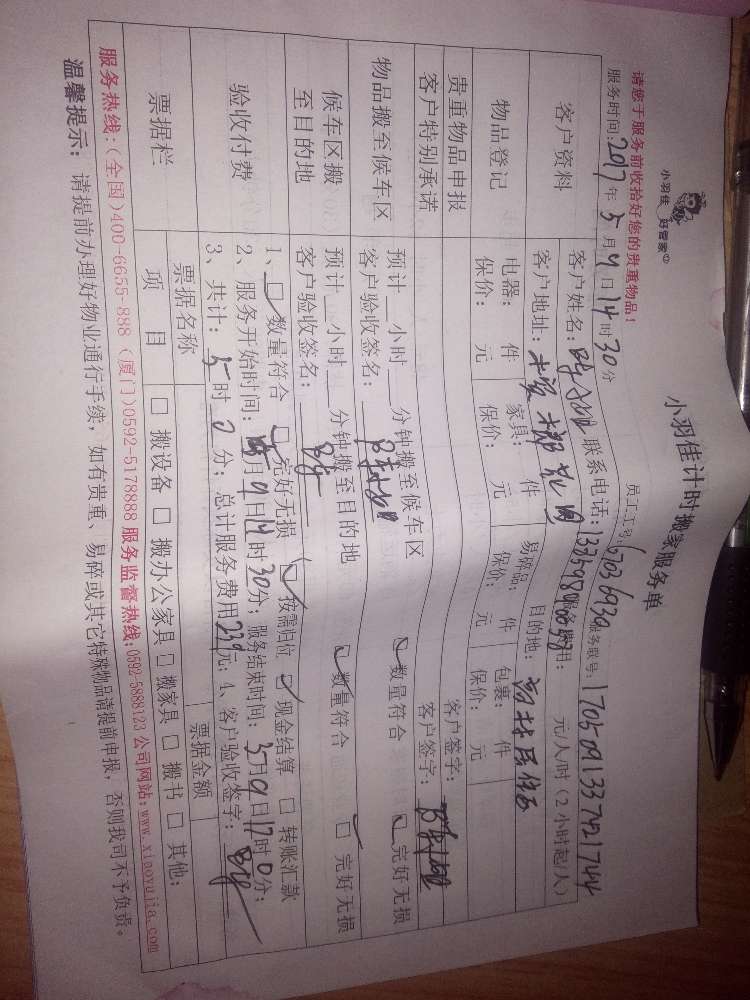 小羽佳 好管家
小羽佳计时搬家服务单
请您于服务前收拾好您的贵重物品！
员工工号:67036930 服务联号:170509133741744
服务时间:2017年5月9日14时30分
客户资料
客户姓名: 联系电话: 服务费用: 元/人/时(2小时起/人)
客户地址: 目的地:
物品登记
电器: 件 家具: 件 易碎品: 件 包裹: 件
保价: 元 保价: 元 保价: 元 保价: 元
贵重物品申报 客户签字:
客户特别承诺 客户签字:
物品搬至候车区
预计 小时 分钟搬至候车区 数量符合 完好无损
客户验收签名:
候车区搬至目的地
预计 小时 分钟搬至目的地 数量符合 完好无损
客户验收签名:
验收付费
1、□数量符合 □完好无损 □按需归位 □现金结算 □转账汇款
2、服务开始时间: 月9日14时30分; 服务结束时间: 5月9日17时0分;
3、共计: 5时0分; 总计服务费用239元; 4、客户验收签字:
票据栏
票据名称 票据金额
项目 □搬设备 □搬办公家具 □搬家具 □搬书 □其他:
服务热线:(全国)400-6655-888 (厦门)0592-5178888 服务监督热线:0592-5888123 公司网站:www.xiaoyujia.com
温馨提示: 请提前办理好物业通行手续，如有贵重、易碎或其它特殊物品请提前申报，否则我司不予负责。